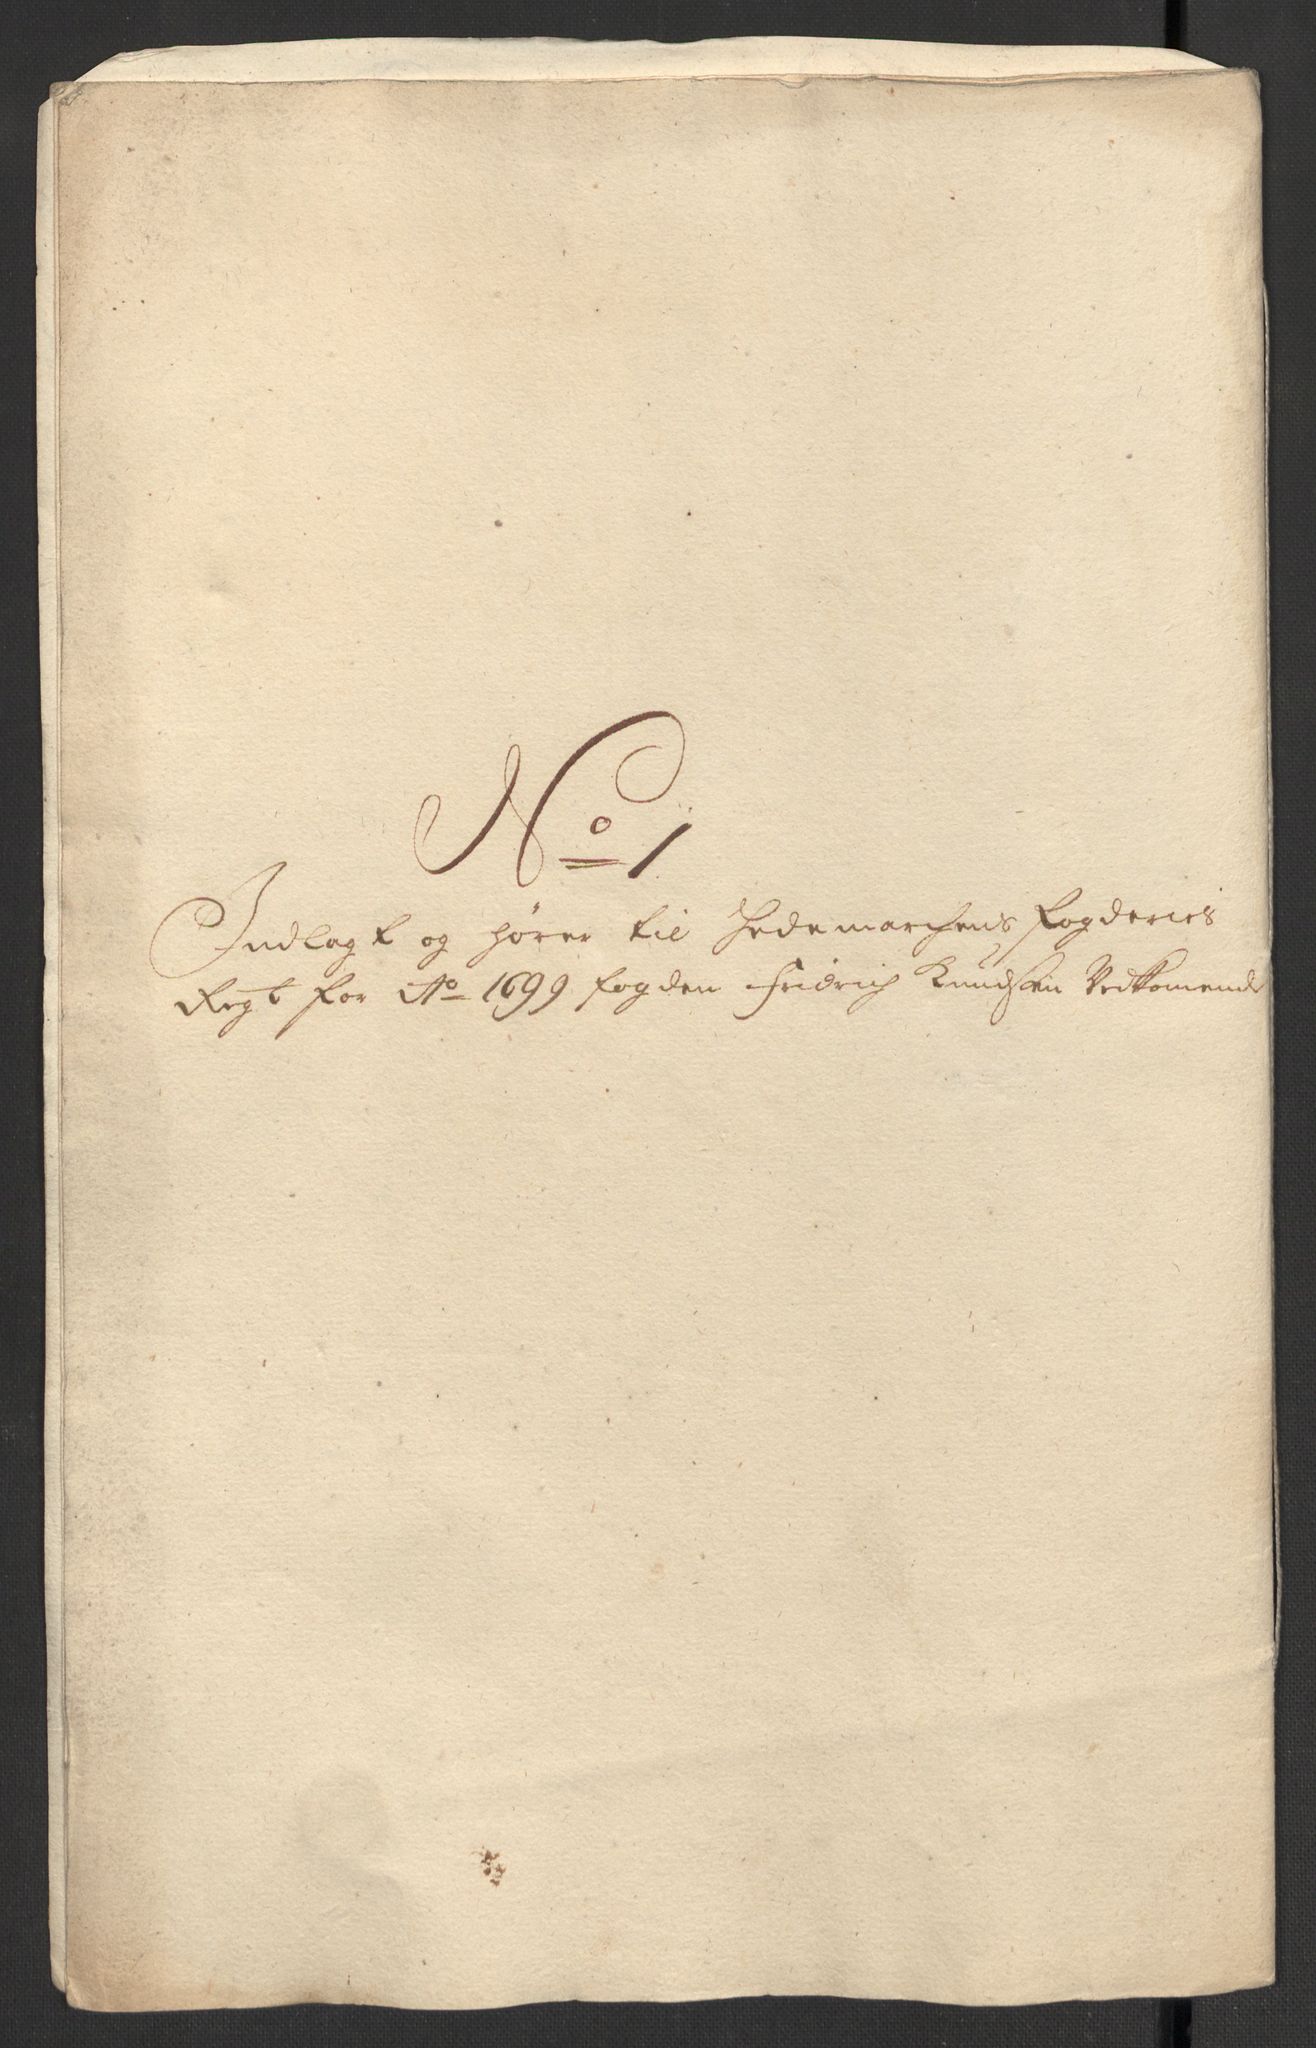 No 1
Indlagt og hører til Hedemarchens fogderies
Regt for Ao 1699 fogden Fridrich Knudsen Vedkomende